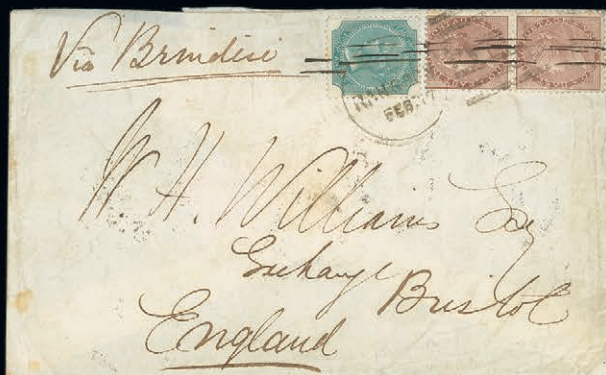 Via Brindisi
FEB
W. H. Williams Esq
Exchange
Bristol
England